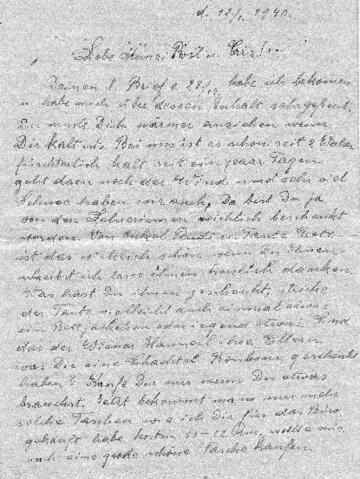 d. 12/1. 1940.
Deinen l. Brief v. 28/12. habe ich bekommen
u habe mich über dessen Inhalt sehr gefreut.
Du mußt Dich wärmer anziehen wenn
Dir kalt ist. Bei uns ist es schon seit 2 Wochen
fürchterlich kalt seit ein paar Tagen
geht dazu noch der Wind und sehr viel
Schnee haben wir auch. Da bist Du ja
von den reichlich beschenkt
worden. Von Onkel u Tante
ist das wirklich schön, wenn Du Ihnen
schreibst ich lasse Ihnen herzlich danken.
Was hast Du ihnen geschenkt, stricke
der Tante vielleicht auch einmal etwas
ein Bettjäckchen oder irgend etwas. Sind
das der Wiener Hannerl ihre Eltern
was Dir eine Schachtel Bonbons geschenkt
haben? Kaufe Dir nur wenn Du etwas
brauchst. Jetzt bekommt man nur mehr
solche Taschen wie ich Dir für das Büro
gekauft habe kosten 11-12 Rm. wollte mir
auch eine große schöne Tasche kaufen